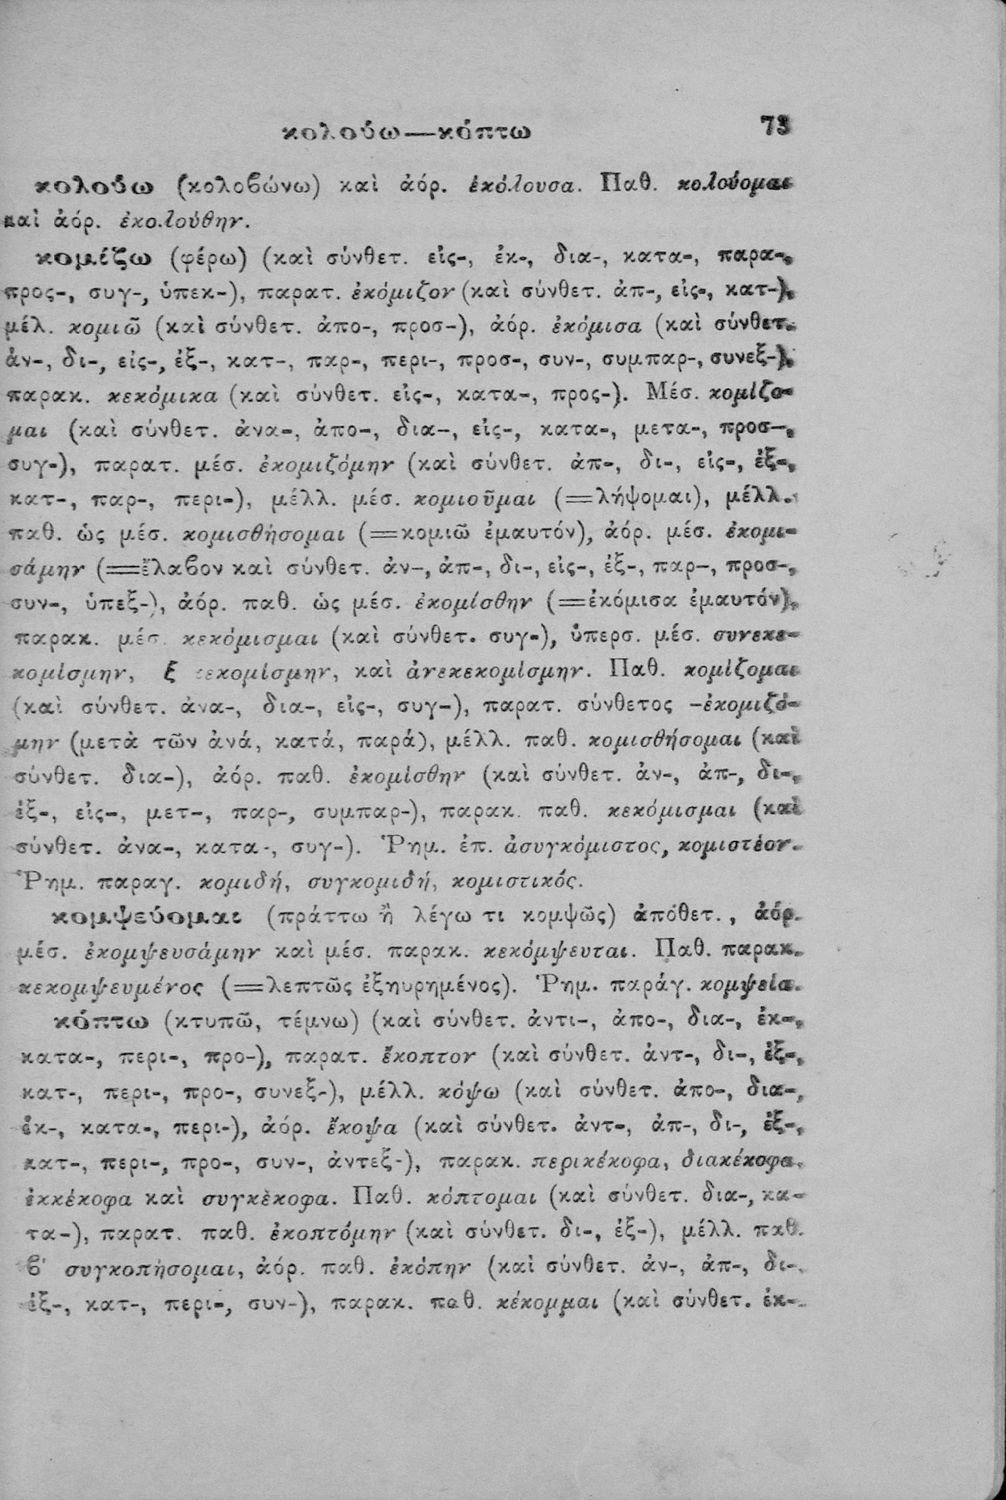 κολούω—κόπτω 73
κολούω (κολοβώνω) καὶ ἀόρ. ἐκόλουσα. Παθ. κολούομαι
καὶ ἀόρ. ἐκολούθην.
κομίζω (φέρω) (καὶ σύνθετ. εἰς-, ἐκ-, δια-, κατα-, παρα-,
προς-, συγ-, ὑπεκ-), παρατ. ἐκόμιζον (καὶ σύνθετ. ἀπ-, εἰς-, κατ-),
μέλ. κομιῶ (καὶ σύνθετ. ἀπο-, προσ-), ἀόρ. ἐκόμισα (καὶ σύνθετ.
ἀν-, δι-, εἰς-, ἐξ-, κατ-, παρ-, περι-, προσ-, συν-, συμπαρ-, συνεξ-),
παρακ. κεκόμικα (καὶ σύνθετ. εἰς-, κατα-, προς-). Μέσ. κομίζο-
μαι (καὶ σύνθετ. ἀνα-, ἀπο-, δια-, εἰς-, κατα-, μετα-, προσ-,
συγ-), παρατ. μέσ. ἐκομιζόμην (καὶ σύνθετ. ἀπ-, δι-, εἰς-, ἐξ-,
κατ-, παρ-, περι-), μέλλ. μέσ. κομιοῦμαι (=λήψομαι), μέλλ.
παθ. ὡς μέσ. κομισθήσομαι (=κομιῶ ἐμαυτόν), ἀόρ. μέσ. ἐκομι-
σάμην (=ἔλαβον καὶ σύνθετ. ἀν-, ἀπ-, δι-, εἰς-, ἐξ-, παρ-, προσ-,
συν-, ὑπεξ-), ἀόρ. παθ. ὡς μέσ. ἐκομίσθην (=ἐκόμισα ἐμαυτόν),
παρακ. μέσ. κεκόμισμαι (καὶ σύνθετ. συγ-), ὑπερσ. μέσ. συνεκε-
κομίσμην, ξ εκομίσμην, καὶ ἀνεκεκομίσμην. Παθ. κομίζομαι
(καὶ σύνθετ. ἀνα-, δια-, εἰς-, συγ-), παρατ. σύνθετος -ἐκομιζό-
μην (μετὰ τῶν ἀνά, κατά, παρά), μέλλ. παθ. κομισθήσομαι (καὶ
σύνθετ. δια-), ἀόρ. παθ. ἐκομίσθην (καὶ σύνθετ. ἀν-, ἀπ-, δι-,
ἐξ-, εἰς-, μετ-, παρ-, συμπαρ-), παρακ. παθ. κεκόμισμαι (καὶ
σύνθετ. ἀνα-, κατα-, συγ-). Ῥημ. ἐπ. ἀσυγκόμιστος, κομιστέον.
Ῥημ. παραγ. κομιδή, συγκομιδή, κομιστικός.
κομψεύομαι (πράττω ἢ λέγω τι κομψῶς) ἀπόθετ., ἀόρ.
μέσ. ἐκομψευσάμην καὶ μέσ. παρακ. κεκόμψευται. Παθ. παρακ.
κεκομψευμένος (=λεπτῶς ἐξηυρημένος). Ῥημ. παράγ. κομψεία.
κόπτω (κτυπῶ, τέμνω) (καὶ σύνθετ. ἀντι-, ἀπο-, δια-, ἐκ-,
κατα-, περι-, προ-), παρατ. ἔκοπτον (καὶ σύνθετ. ἀντ-, δι-, ἐξ-,
κατ-, περι-, προ-, συνεξ-), μέλλ. κόψω (καὶ σύνθετ. ἀπο-, δια-,
ἐκ-, κατα-, περι-), ἀόρ. ἔκοψα (καὶ σύνθετ. ἀντ-, ἀπ-, δι-, ἐξ-,
κατ-, περι-, προ-, συν-, ἀντεξ-), παρακ. περικέκοφα, διακέκοφα,
ἐκκέκοφα καὶ συγκέκοφα. Παθ. κόπτομαι (καὶ σύνθετ. δια-, κα-
τα-), παρατ. παθ. ἐκοπτόμην (καὶ σύνθετ. δι-, ἐξ-), μέλλ. παθ.
ϐ' συγκοπήσομαι, ἀόρ. παθ. ἐκόπην (καὶ σύνθετ. ἀν-, ἀπ-, δι-,
ἐξ-, κατ-, περι-, συν-), παρακ. παθ. κέκομμαι (καὶ σύνθετ. ἐκ-